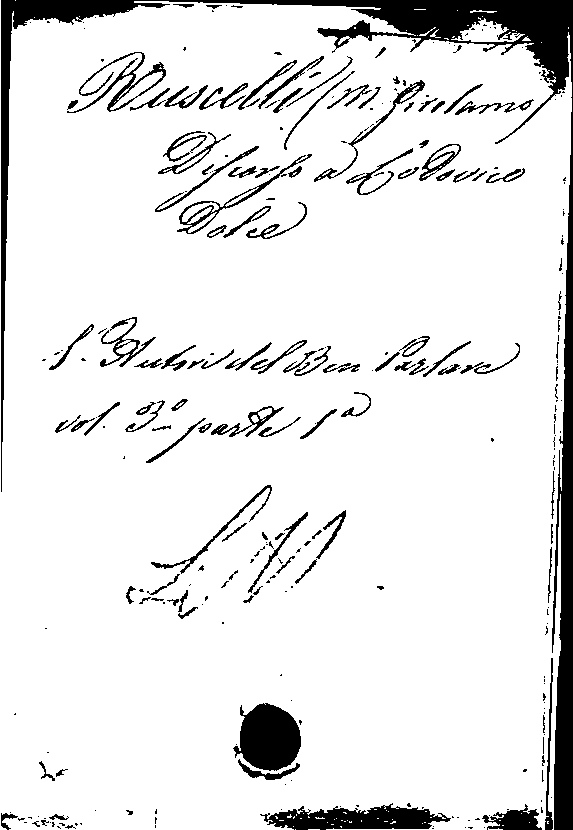 Ruscelli (M. Girolamo)
Discorso a Lodovico
Dolce
Autori del Ben Parlare
vol. 3º parte 1ª